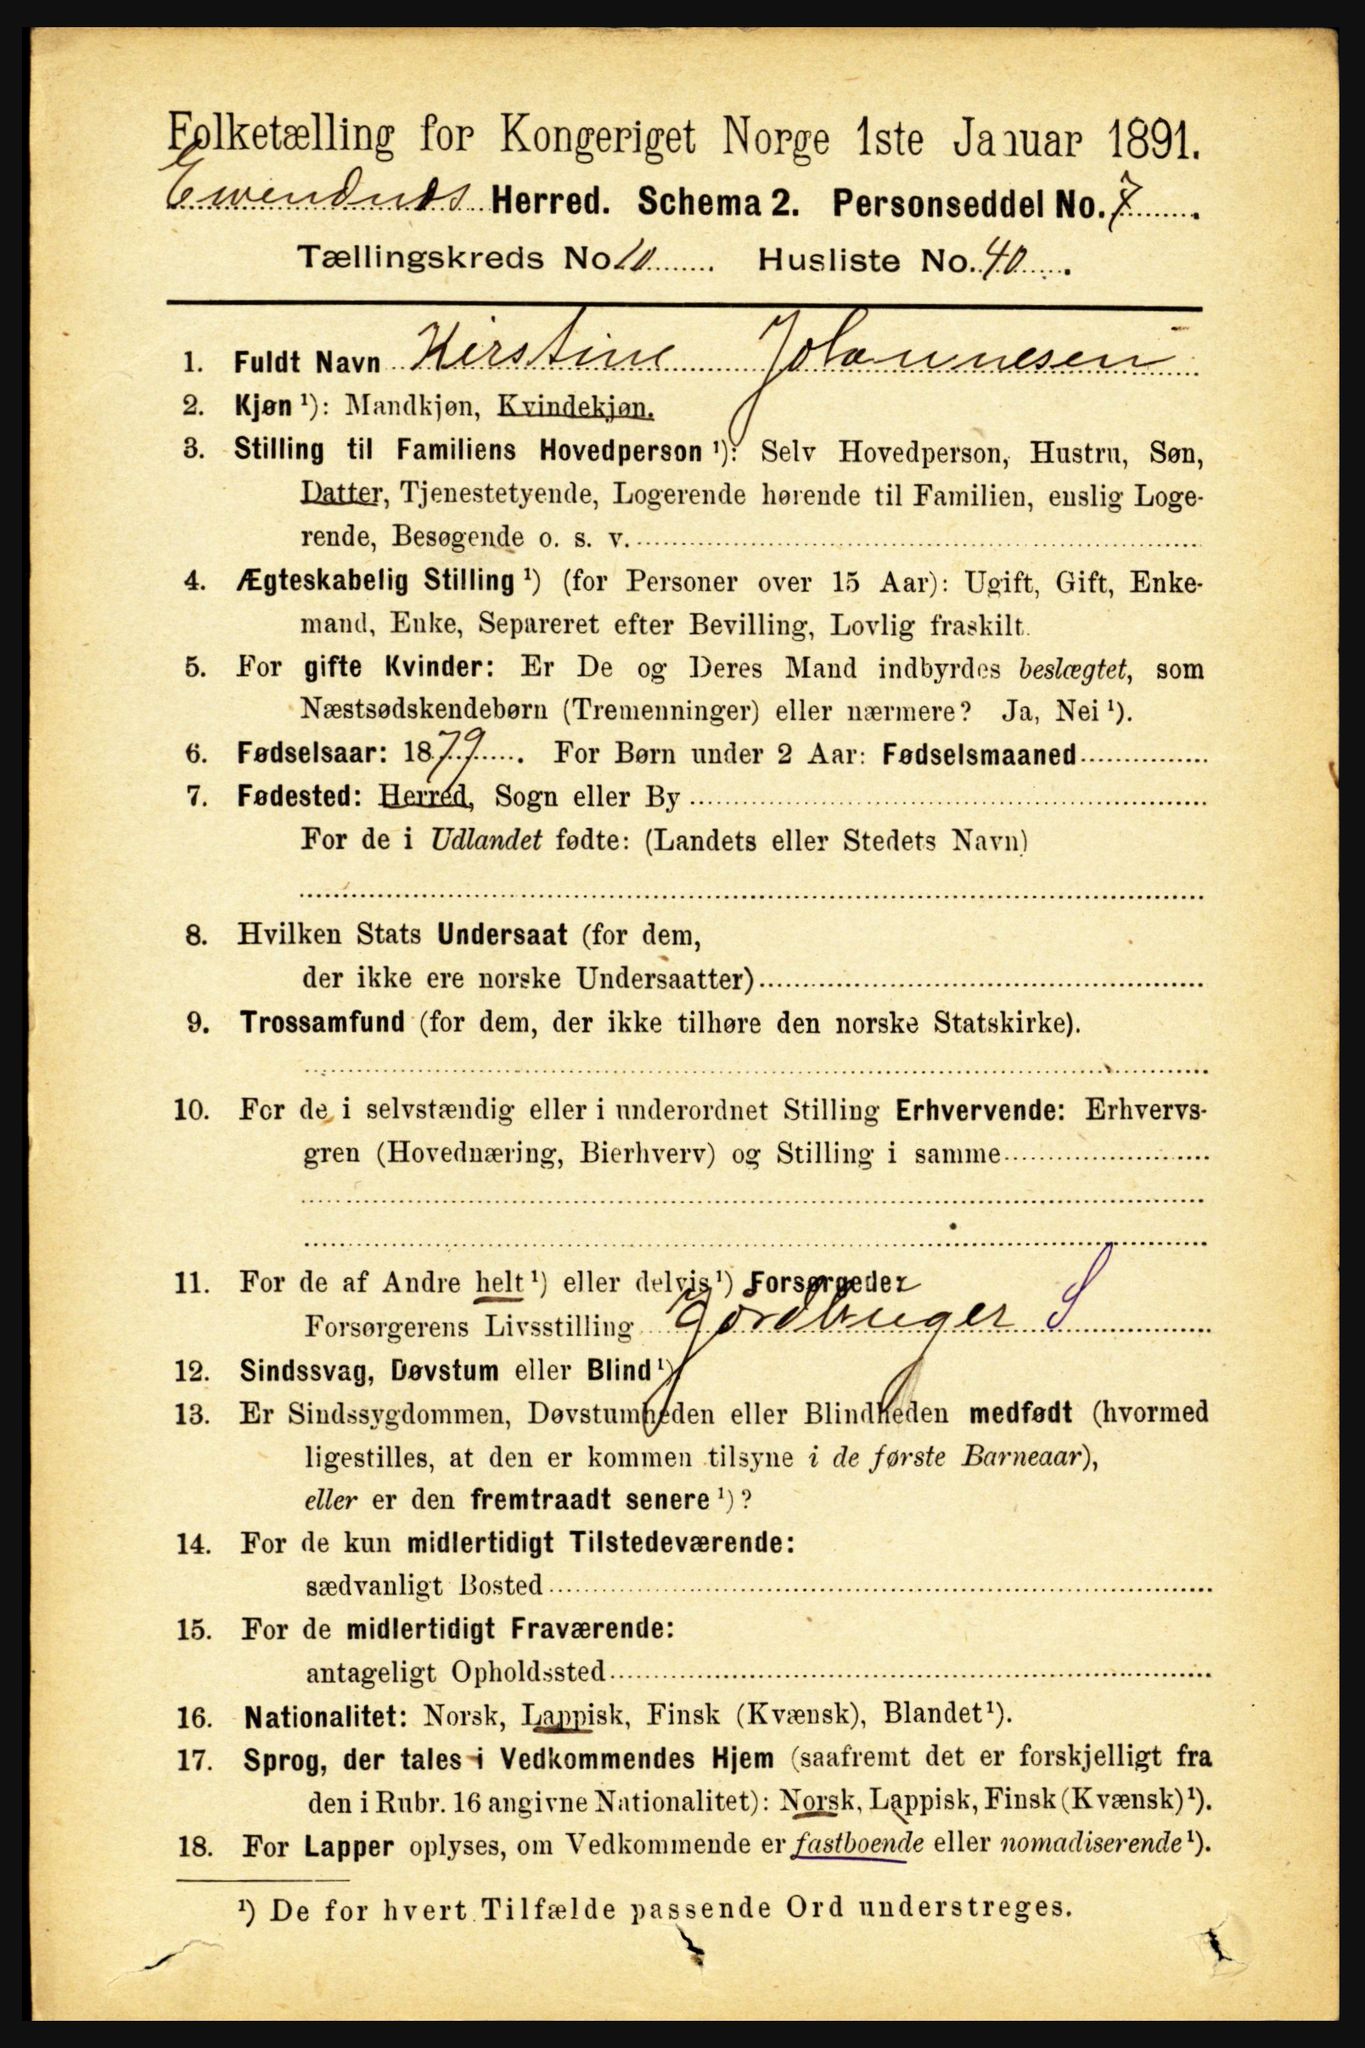 Folketælling for Kongeriget Norge 1ste Januar 1891.
Evendnæs Herred. Schema 2. Personseddel No. 7.
Tællingskreds No. 10. Husliste No. 40.
1. Fuldt Navn Kirstine Johannesen
2. Kjøn ¹): Mandkjøn, Kvindekjøn.
3. Stilling til Familiens Hovedperson ¹): Selv Hovedperson, Hustru, Søn,
Datter, Tjenestetyende, Logerende hørende til Familien, enslig Loge-
rende, Besøgende o. s. v.
4. Ægteskabelig Stilling ¹) (for Personer over 15 Aar): Ugift, Gift, Enke-
mand, Enke, Separeret efter Bevilling, Lovlig fraskilt.
5. For gifte Kvinder: Er De og Deres Mand indbyrdes beslægtet, som
Næstsødskendebørn (Tremenninger) eller nærmere? Ja, Nei ¹).
6. Fødselsaar: 1879. For Børn under 2 Aar: Fødselsmaaned
7. Fødested: Herred, Sogn eller By
For de i Udlandet fødte: (Landets eller Stedets Navn)
8. Hvilken Stats Undersaat (for dem,
der ikke ere norske Undersaatter)
9. Trossamfund (for dem, der ikke tilhøre den norske Statskirke).
10. For de i selvstændig eller i underordnet Stilling Erhvervende: Erhvervs-
gren (Hovednæring, Bierhverv) og Stilling i samme
11. For de af Andre helt ¹) eller delvis ¹) Forsørgede:
Forsørgerens Livsstilling Jordbruger S
12. Sindssvag, Døvstum eller Blind ¹)
13. Er Sindssygdommen, Døvstumheden eller Blindheden medfødt (hvormed
ligestilles, at den er kommen tilsyne i de første Barneaar),
eller er den fremtraadt senere ¹)?
14. For de kun midlertidigt Tilstedeværende:
sædvanligt Bosted
15. For de midlertidigt Fraværende:
antageligt Opholdssted
16. Nationalitet: Norsk, Lappisk, Finsk (Kvænsk), Blandet ¹).
17. Sprog, der tales i Vedkommendes Hjem (saafremt det er forskjelligt fra
den i Rubr. 16 angivne Nationalitet): Norsk, Lappisk, Finsk (Kvænsk) ¹).
18. For Lapper oplyses, om Vedkommende er fastboende eller nomadiserende ¹).
¹) De for hvert Tilfælde passende Ord understreges.